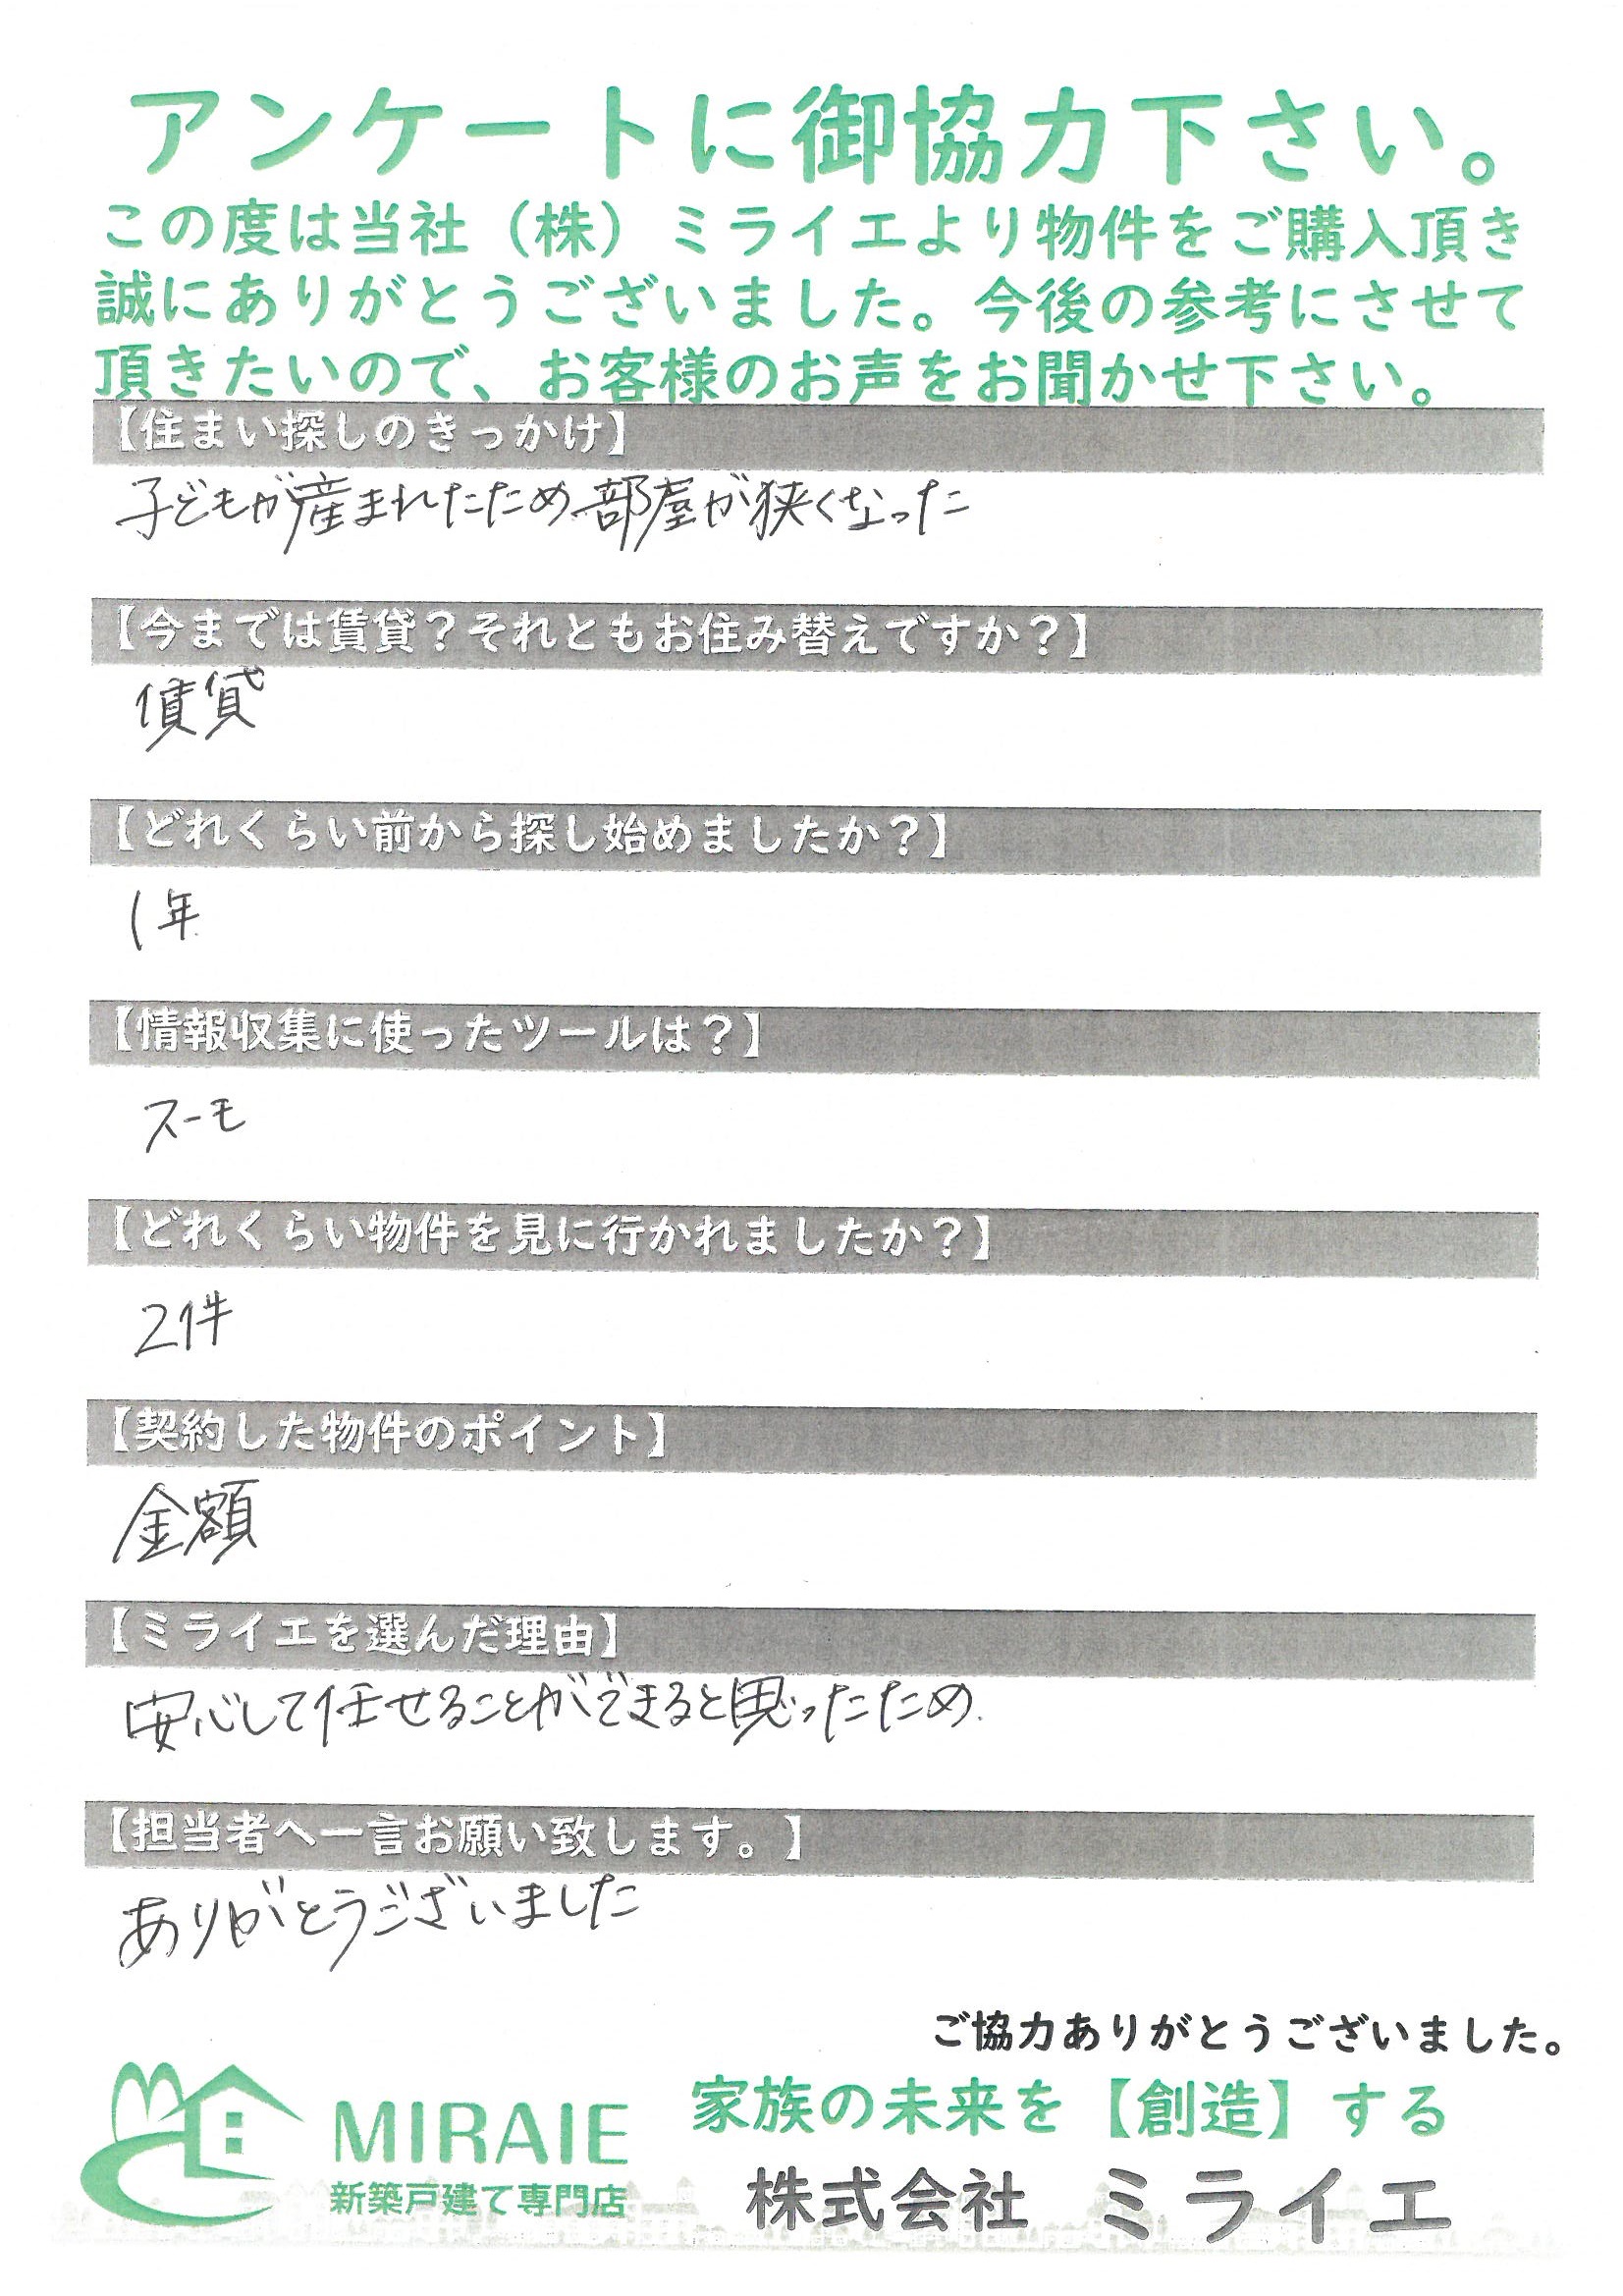 アンケートに御協力下さい。
この度は当社（株）ミライエより物件をご購入頂き
誠にありがとうございました。今後の参考にさせて
頂きたいので、お客様のお声をお聞かせ下さい。
【住まい探しのきっかけ】
子どもが産まれたため部屋が狭くなった
【今までは賃貸？それともお住み替えですか？】
賃貸
【どれくらい前から探し始めましたか？】
1年
【情報収集に使ったツールは？】
スーモ
【どれくらい物件を見に行かれましたか？】
2件
【契約した物件のポイント】
金額
【ミライエを選んだ理由】
安心して任せることができると思ったため.
【担当者へ一言お願い致します。】
ありがとうございました
ご協力ありがとうございました。
家族の未来を【創造】する
MIRAIE
新築戸建て専門店
株式会社 ミライエ